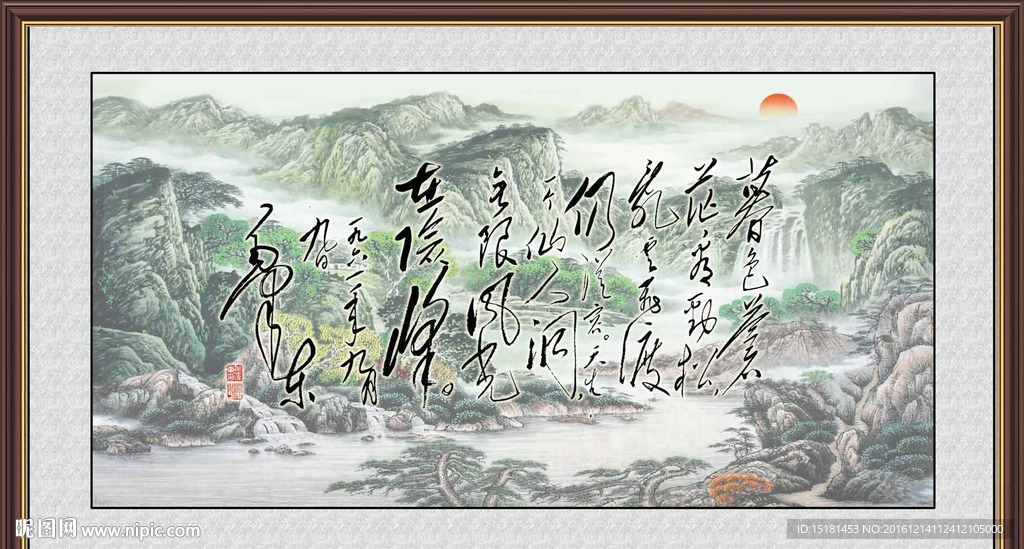 暮色蒼
茫看勁松
亂雲飛渡
仍從容。天生
一个仙人洞
無限風光
在險峰。
一九六一年九月
九日
毛澤東
昵图网 www.nipic.com
ID:15181453 NO:20161214112412105000